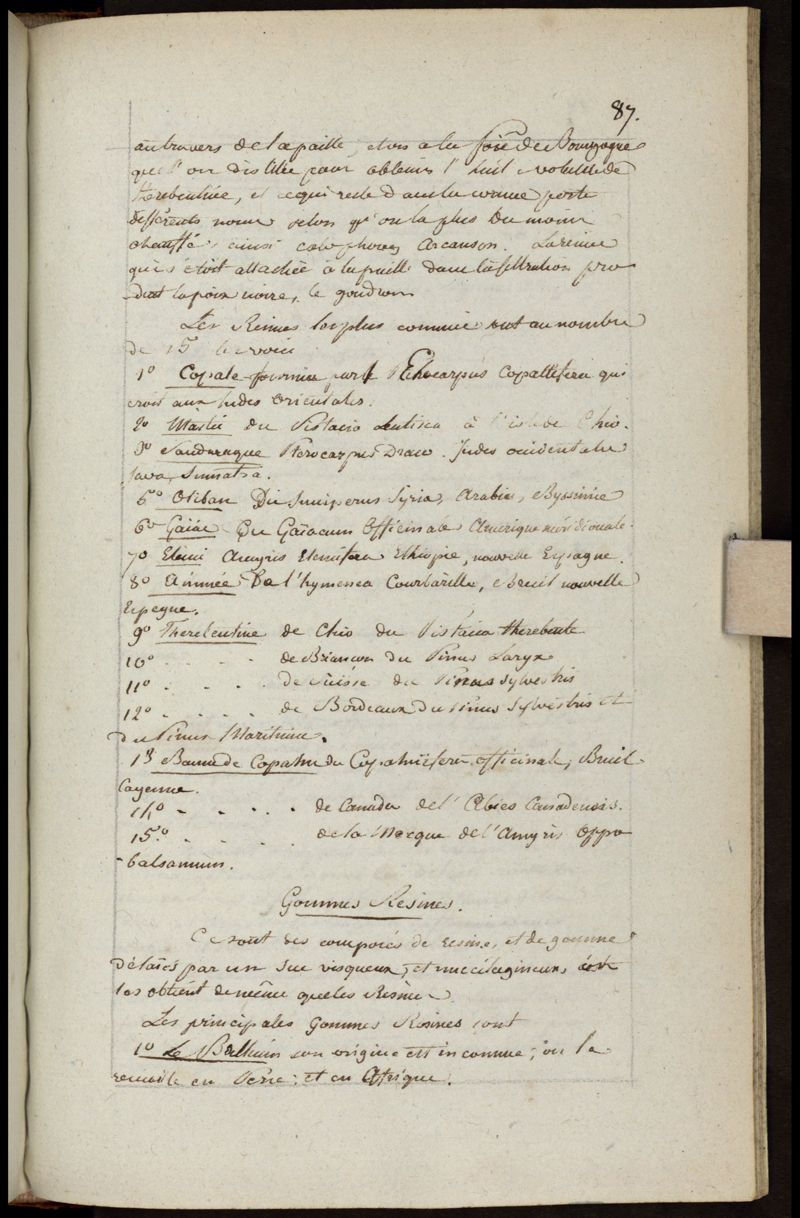 87.
au travers de la paille, alors a lu poix de Bourgogne
que l'on distille pour obtenir l'huil volatille de
therebentine, et ce qui reste dans la cornue porte
differents noms selon qu'on la plus ou moins
chauffé, ainsi colophone, arcanson. La resine
qui s'étoit attachée à la paille dans la filtration pro
-duit la poix noire, le goudron
Les Resines les plus connues sont au nombre
de 15 les voici
1º Copale fournie par l' Elæocarpus Copallifera qui
croit aux Indes orientales.
2º Mastic du Pistacia Lentisca à l'isle de Chio.
3º Sandaraque Pterocarpus Draco. Indes occidentales
Java, Sumatra.
5º Oliban Du Juniperus Syria, Arabie, Abyssinie
6º Gaiac Du Gaïacum Officinale Amerique méridionale.
7º Elemi Amyris Elemifera Ethiopie, nouvelle Espagne.
8º Animée De l'hymenea Courbarille, Bresil nouvelle
Espagne.
9º Therebentine de Chio du Pistacia therebente
10º . . . . de Briancon du Pinus Laryx
11º . . . . de Suisse du Pinus sylvestris
12º . . . . de Bordeaux du Pinus sylvestris et
du Pinus Maritima.
13 Baume de Copahu du Copahuifera officinale, Bresil
Cayenne.
14º - . . . de Canada de l'Abies Canadensis.
15.º . . . . de la Mecque de l'Amyris Oppo
-balsamum.
Gommes Resines.
Ce sont des composés de resine, et de gomme
délaiés par un suc visqueux, et mucilagineux,
les obtient de même que les Resines
Les principales Gommes Resines sont
1º Le Bdellium son origine est inconnue; on le
recueille en Perse; et en Afrique.